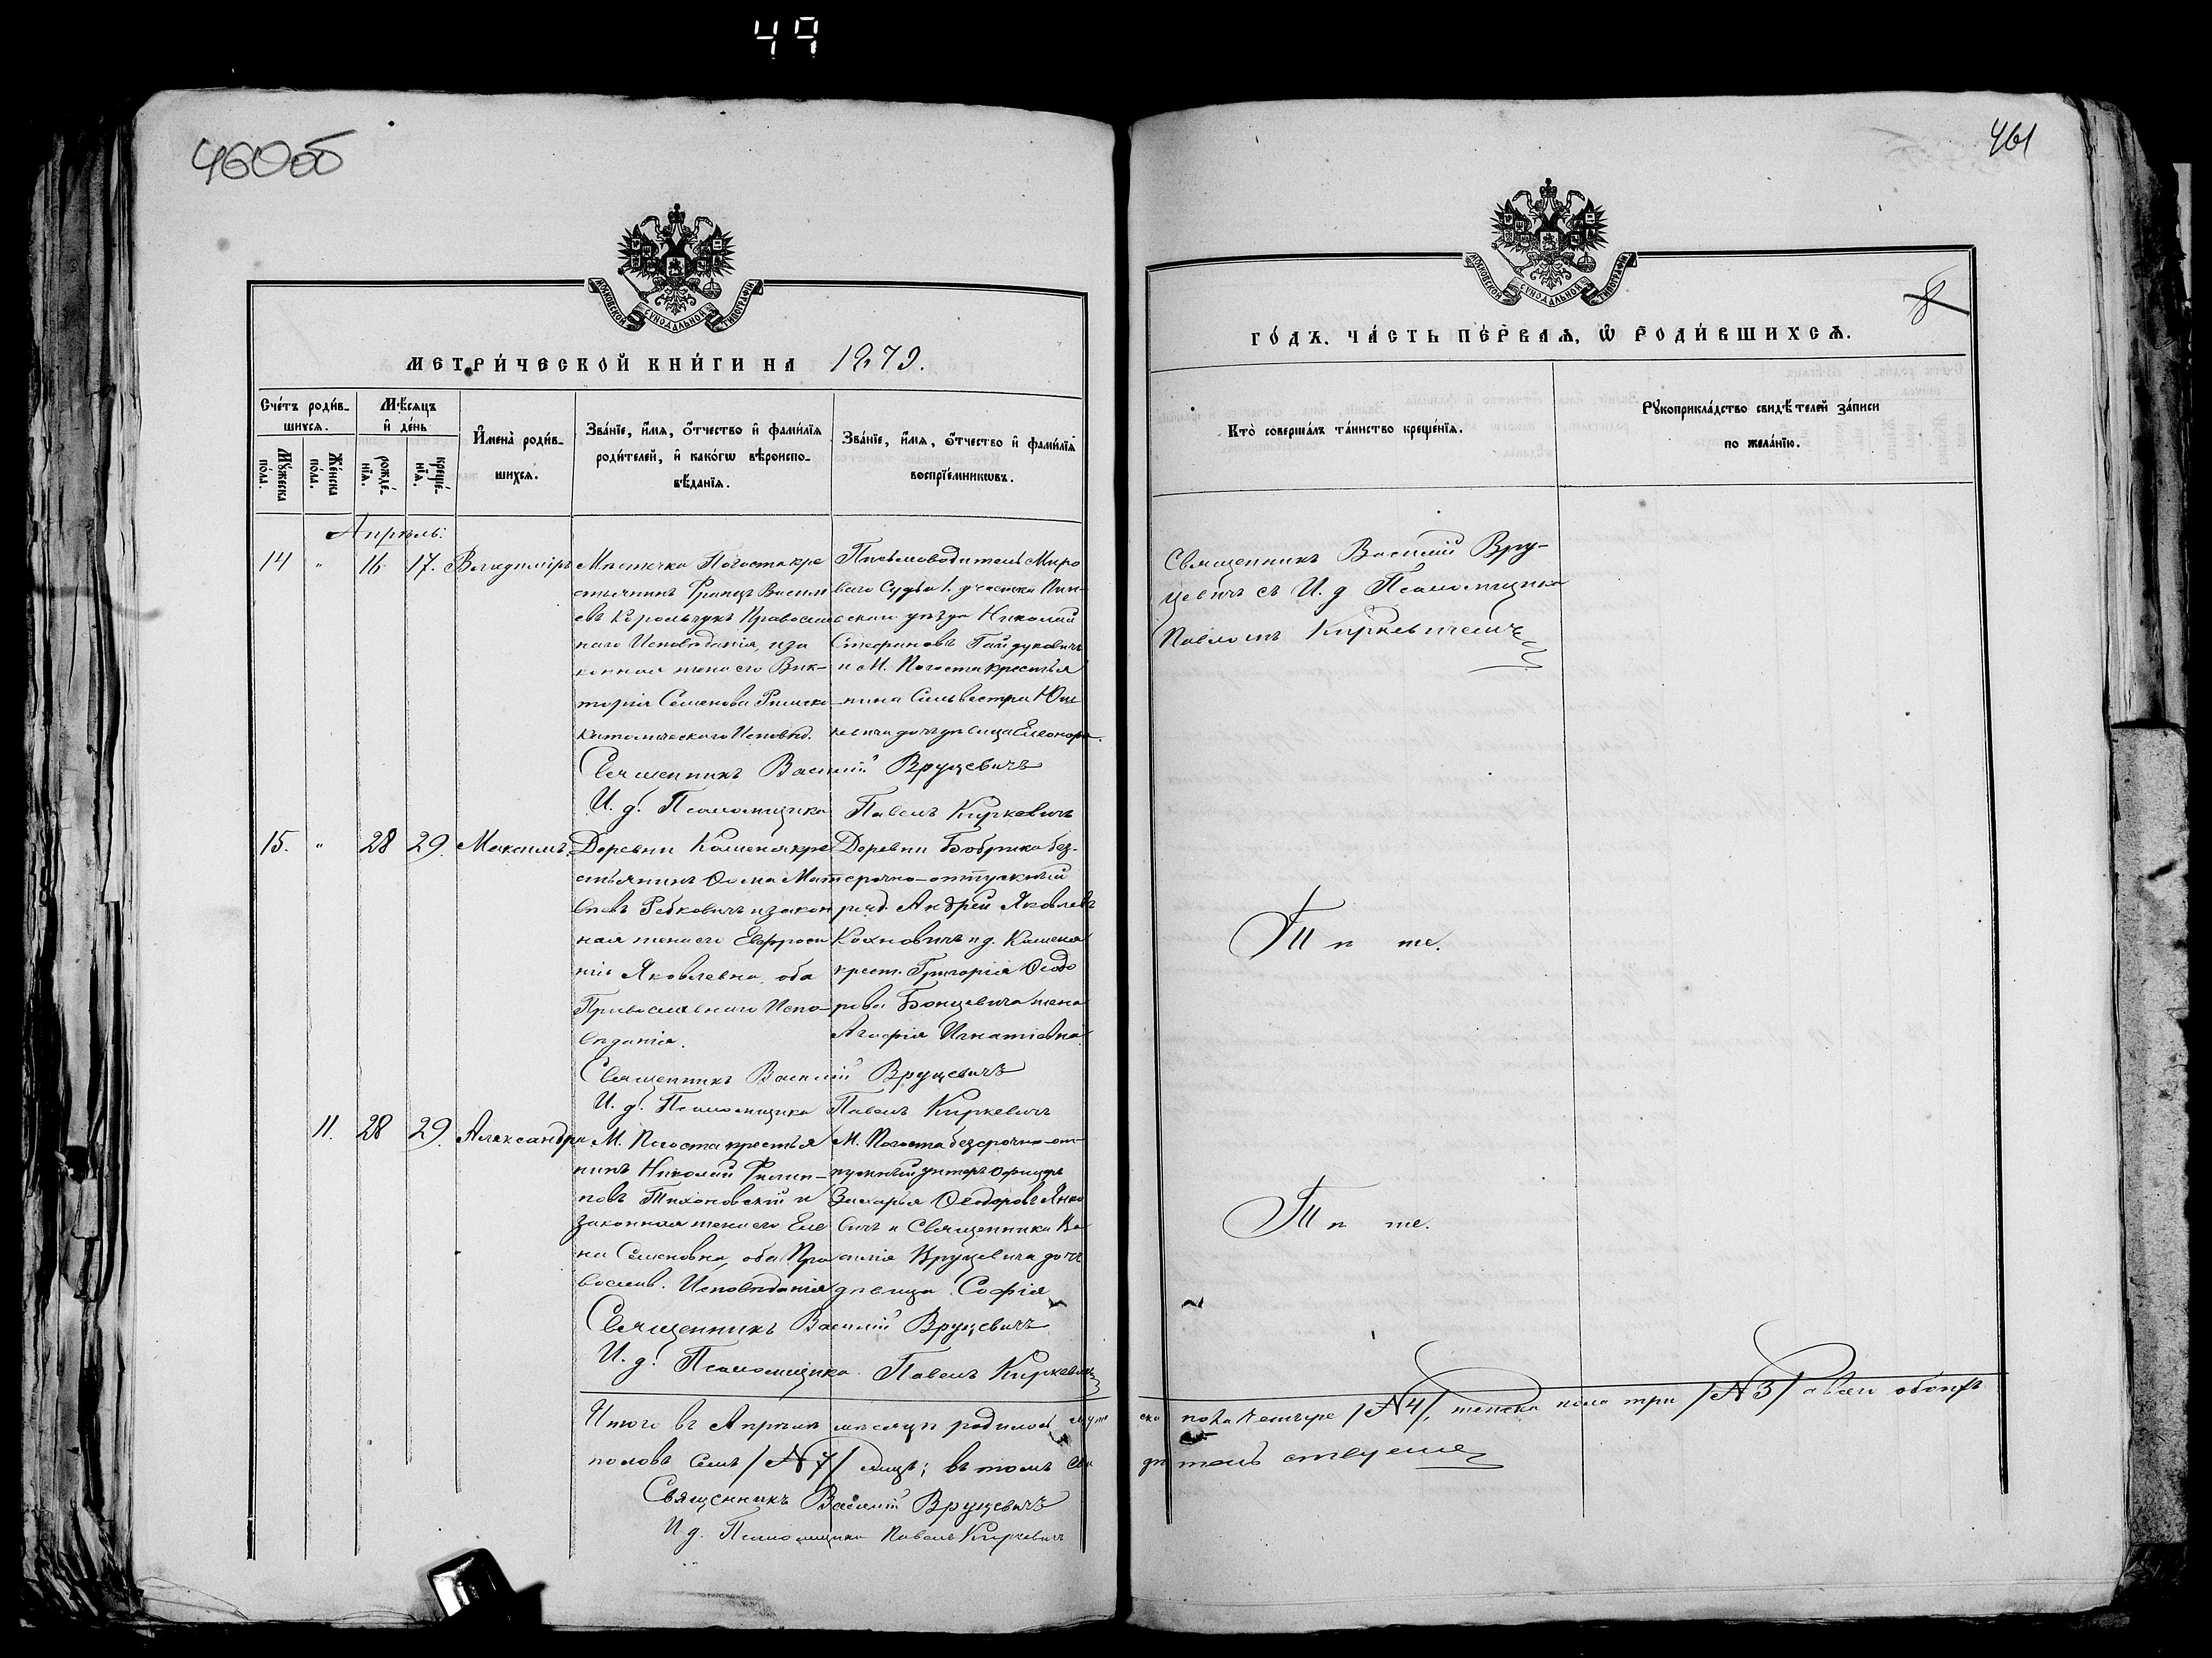 49
460об
461
8
МОСКОВСКОЙ СѴНОДАЛЬНОЙ ТИПОГРАФІИ
МОСКОВСКОЙ СѴНОДАЛЬНОЙ ТИПОГРАФІИ
МЕТРИ́ЧЕСКОЙ КНИ́ГИ НА 1879.
ГО́ДЪ. ЧА́СТЬ ПЕ́РВАѦ, Ѡ РОДИ́ВШИХСѦ.
Сче́тъ роди́в-
шихсѧ.
Мꙋ́жеска по́ла.
Же́нска по́ла.
Мѣ́сѧцъ
и де́нь
рожде́-
нїѧ.
креще́-
нїѧ.
И́мена роди́в-
шихсѧ.
Зва́нїе, и́мѧ, ѻ́тчество и фами́лїѧ
роди́телей, и како́гѡ вѣроиспо-
вѣ́данїѧ.
Зва́нїе, и́мѧ, ѻ́тчество и фами́лїѧ
воспрїе́мникѡвъ.
Кто̀ соверша́лъ та́инство креще́нїѧ.
Рꙋкоприкла́дство свидѣ́телей за́писи
по жела́нїю.
Апрѣль.
14 " 16 17. Владиміръ
Мѣстечка Погоста кре
стьянинъ Францъ Васил
евъ Корольчукъ Правосла
внаго Исповѣданія, и за
конная жена его Вик-
торія Семенова Римско
Католическаго Исповѣд.
Письмоводитель Миро
ваго Судьи 1. участка Пин-
скаго уѣзда Николай
Стефановъ Гайдуковичъ
и М. Погоста крестья
нина Сильвестра Юш
кевича дочь дѣвица Елеонора.
Священникъ Василій Вруцевичъ
И. д. Псаломщика Павелъ Киркевичъ
Священникъ Василій Вру-
цевичъ съ И. д Псаломщика
Павломъ Киркевичемъ
15. " 28 29. Максимъ.
Деревни Каменя кре
стьянинъ Ѳома Мат
вѣевъ Ребковичъ и закон
ная жена его Евфроси
нія Яковлевна, оба
Православнаго Испо-
вѣданія.
Деревни Бобрика без-
срочно-отпускный
ряд. Андрей Яковлевъ
Кохновичъ и д. Каменя
крест. Григорія Ѳеодо
рова Бонцевича жена
Агафія Игнатіевна.
Священникъ Василій Вруцевичъ
И. д. Псаломщика Павелъ Киркевичъ
Тѣ же.
11. 28 29. Александра
М. Погоста крестья
нинъ Николай Филип-
повъ Тихоновскій и
законная жена его Еле
на Семеновна, оба Пра
восл. Исповѣданія
М. Погоста безсрочно-от-
пускный унтеръ Офицеръ
Захарья Ѳеодоровъ Янко
вичъ и Священника Ва
силія Вруцевича дочь
дѣвица Софія
Священникъ Василій Вруцевичъ
И. д. Псаломщика Павелъ Киркевичъ
Тѣ же.
Итого въ Апрѣлѣ мѣсяцѣ родилось муже
ска пола четыре /№4/, женска пола три /№3/ а всѣхъ обоихъ
половъ семь /№7/ лицъ; въ томъ сви
дѣтельствуемъ
Священникъ Василій Вруцевичъ
И д. Псаломщика Павелъ Киркевичъ